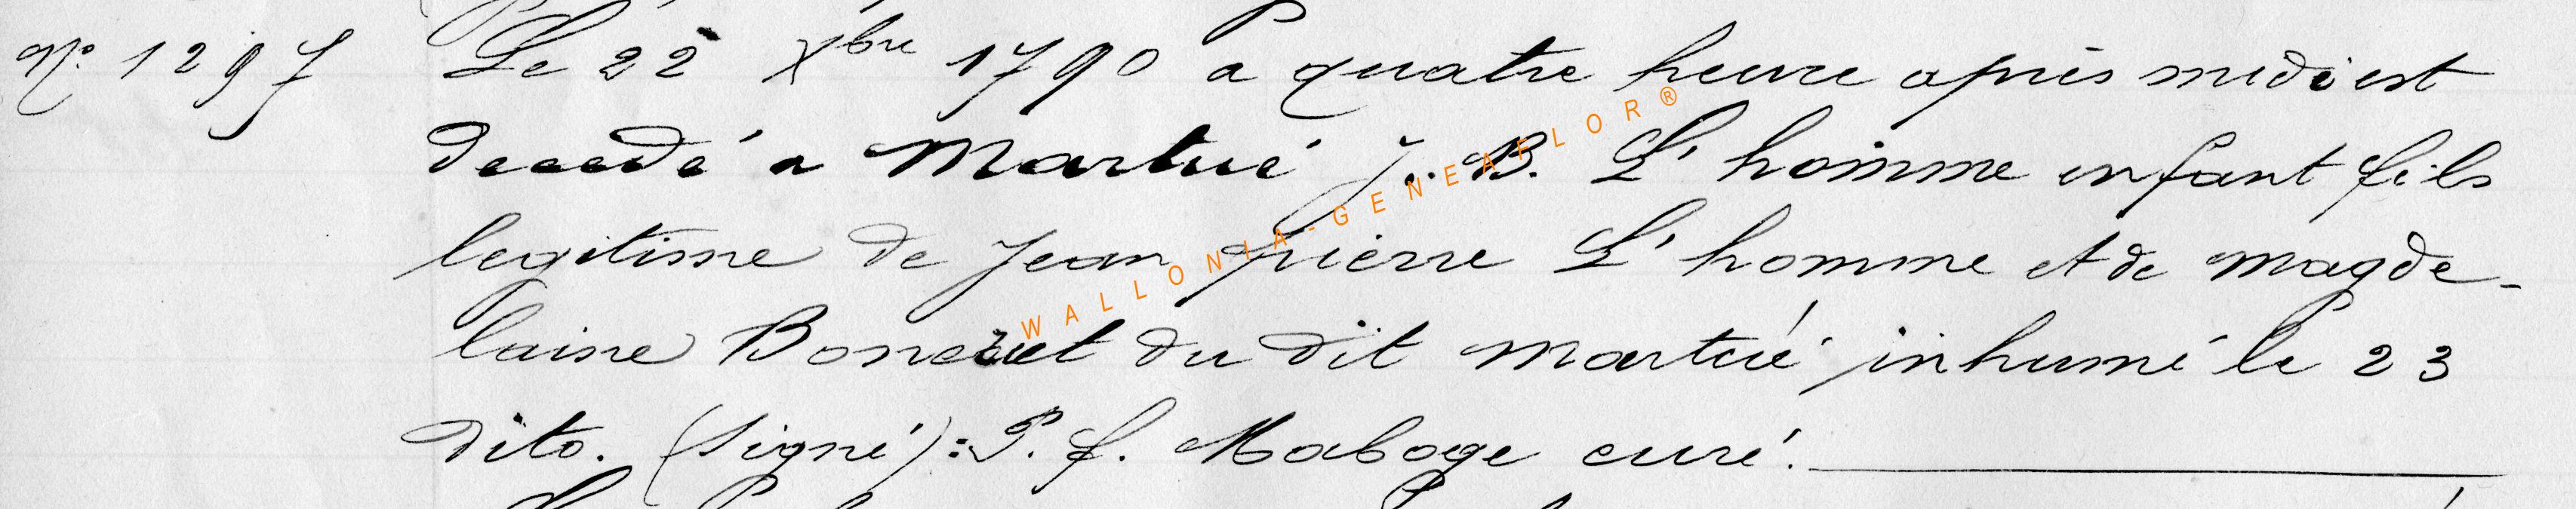 N° 1297 Le 22 Xbre 1790 a quatre heure après midi est
decedé a Martué J.. B. L'homme enfant fils
legitime de Jean pierre L'homme et de Magde-
laine du dit Martué inhumé le 23
dito. (signé): P. f. Maboge curé.
WALLONIA-GENEAFLOR®